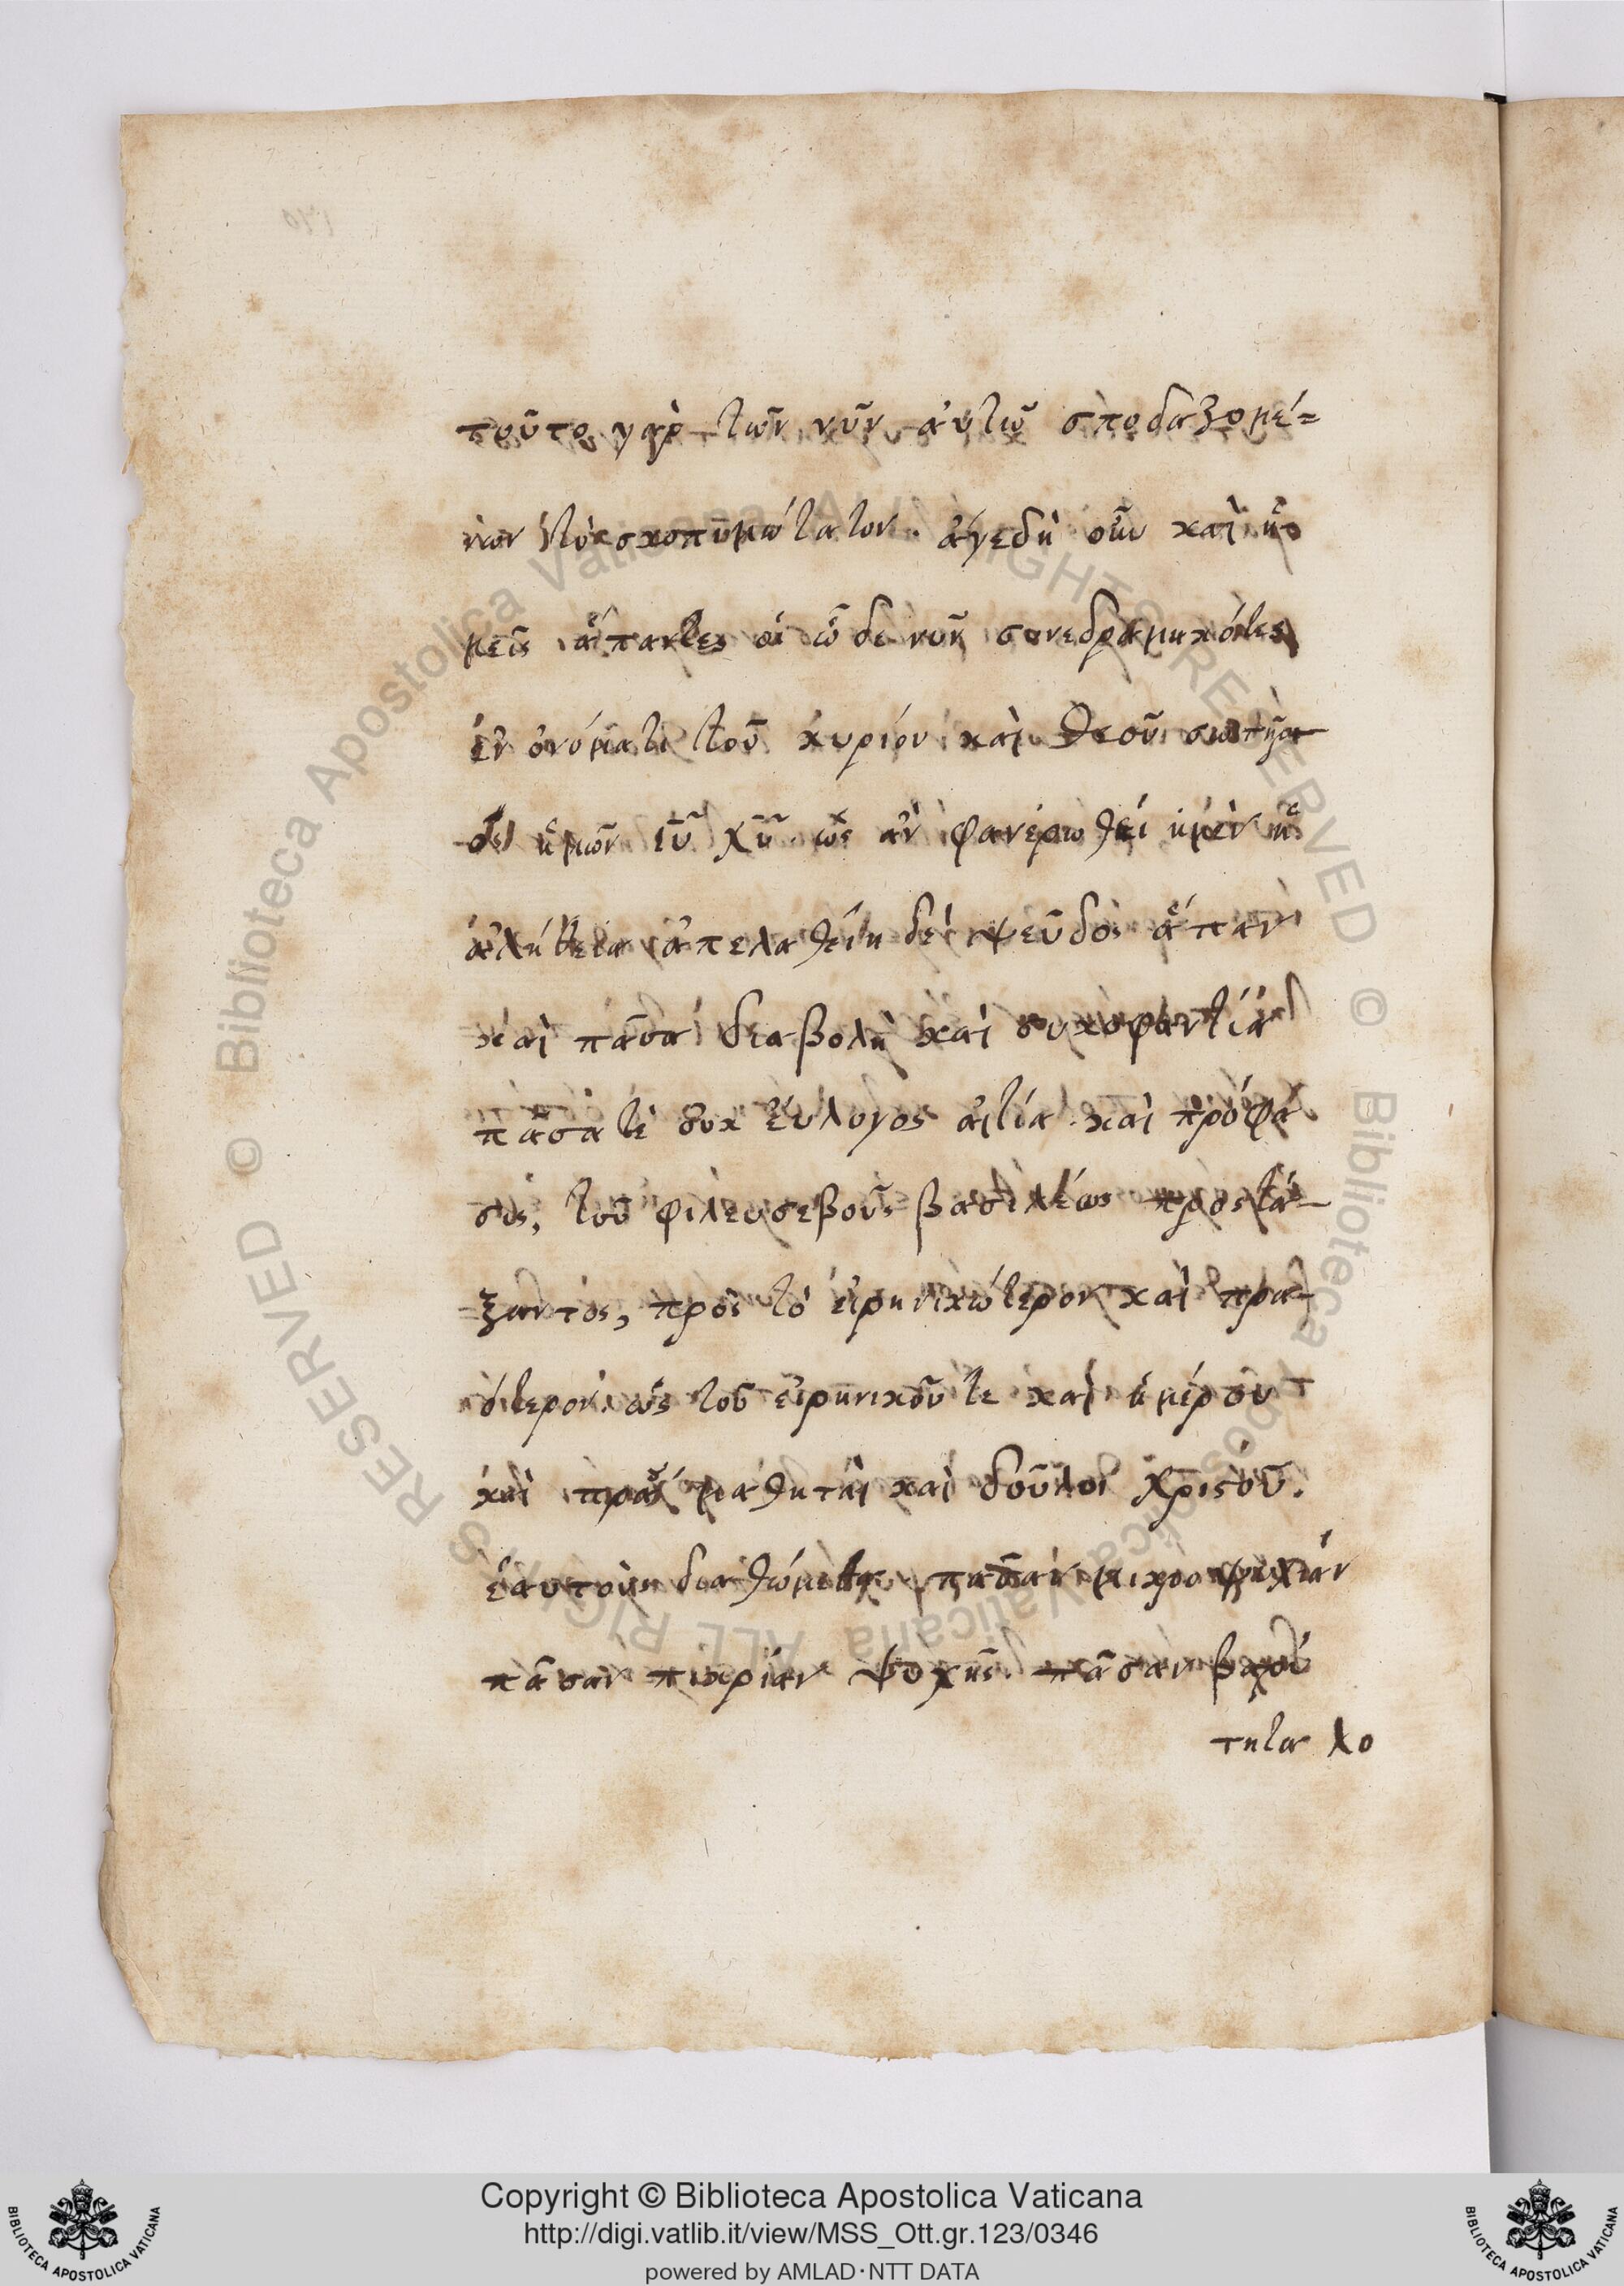 τοῦτο γὰρ τῶν νῦν αὐτῶ σποδαζομέ=
νων τὸ σκοπιμώτατον. ἄγε δὴ οὖν καὶ ἡ
μεῖς ἅπαντες οἱ ὧδε νῦν συνεδραμηκότες
ἐν ὀνόματι τοῦ κυρίου καὶ θεοῦ σωτῆρ
ος ἡμῶν ἰῦ χῦ ὡς ἂν φανερωθεί ἡμὲν ἡ
ἀλήθεια ἀπελαθείη δὲ ψεῦδος ἅπαν
καὶ πᾶσα διαβολὴ καὶ συκοφαντία
πᾶσα τὲ οὐκ εὔλογος αἰτία. καὶ πρόφα
σις, τοῦ φιλευσεβοῦς βασιλέως προστά-
ξαντος, πρὸς τὸ εἰρηνικώτερον καὶ πρα-
ότερον. ὡς τοῦ εἰρηνικοῦ τε καὶ ἡμέρου
καὶ πραοῦ μαθηταὶ καὶ δοῦλοι Χριστοῦ.
ἑαυτοὺς διαθώμεθα πᾶσαν μικροψυχίαν
πᾶσαν πικρίαν ψυχῆς. πᾶσαν βαρύ
τητα λο
Copyright © Biblioteca Apostolica Vaticana
http://digi.vatlib.it/view/MSS_Ott.gr.123/0346
powered by AMLAD·NTT DATA
BIBLIOTECA APOSTOLICA VATICANA
BIBLIOTECA APOSTOLICA VATICANA
© Biblioteca Apostolica Vaticana ALL RIGHTS RESERVED
© Biblioteca Apostolica Vaticana ALL RIGHTS RESERVED